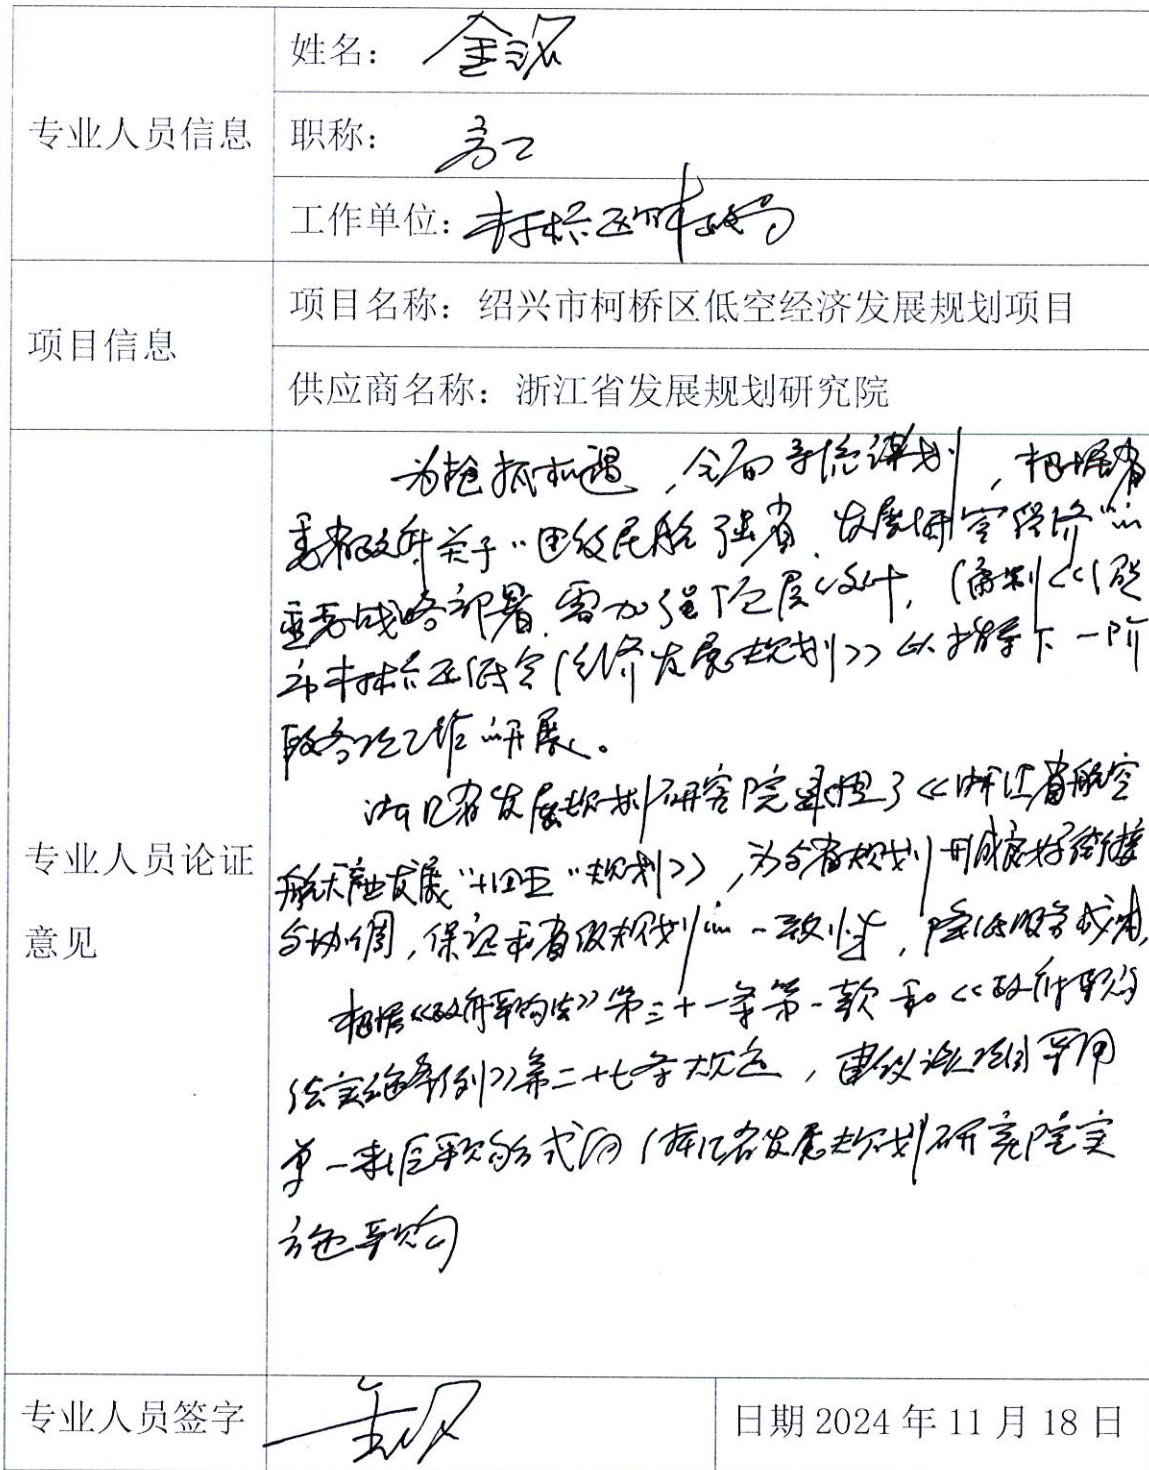 专业人员信息
姓名：金泓
职称：高工
工作单位：柯桥区财政局
项目信息
项目名称：绍兴市柯桥区低空经济发展规划项目
供应商名称：浙江省发展规划研究院
专业人员论证
意见
为抢抓机遇，全面系统谋划，根据省
委省政府关于“ 民航强省、发展低空经济”的
重要战略部署，需加强顶层设计，编制《绍兴
市柯桥区低空经济发展规划》以指导下一阶
段各项工作的开展。
浙江省发展规划研究院承担了《浙江省航空
航天产业发展“十四五”规划》，为与省规划形成良好衔接
与协调，保证和省级规划的一致性，降低服务成本，
根据《政府采购法》第三十一条第一款和《政府采购
法实施条例》第二十七条规定，建议该项目采用
单一来源采购方式向浙江省发展规划研究院实
施采购
专业人员签字
日期 2024 年 11 月 18 日